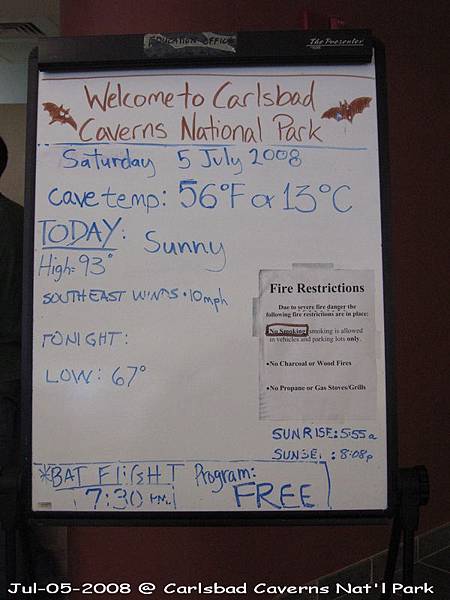 EDUCATION OFFICE
The Presenter
Welcome to Carlsbad
Caverns National Park
Saturday 5 July 2008
Cave temp: 56°F or 13°C
TODAY: Sunny
High= 93°
SOUTHEAST WINDS • 10mph
TONIGHT:
LOW: 67°
Fire Restrictions
Due to severe fire danger the
following fire restrictions are in place:
No Smoking smoking is allowed
in vehicles and parking lots only.
•No Charcoal or Wood Fires
•No Propane or Gas Stoves/Grills
SUNRISE: 5:55a
SUNSET : 8:08p
*BAT FLIGHT Program:
7:30 P.M. FREE
Jul-05-2008 @ Carlsbad Caverns Nat'l Park